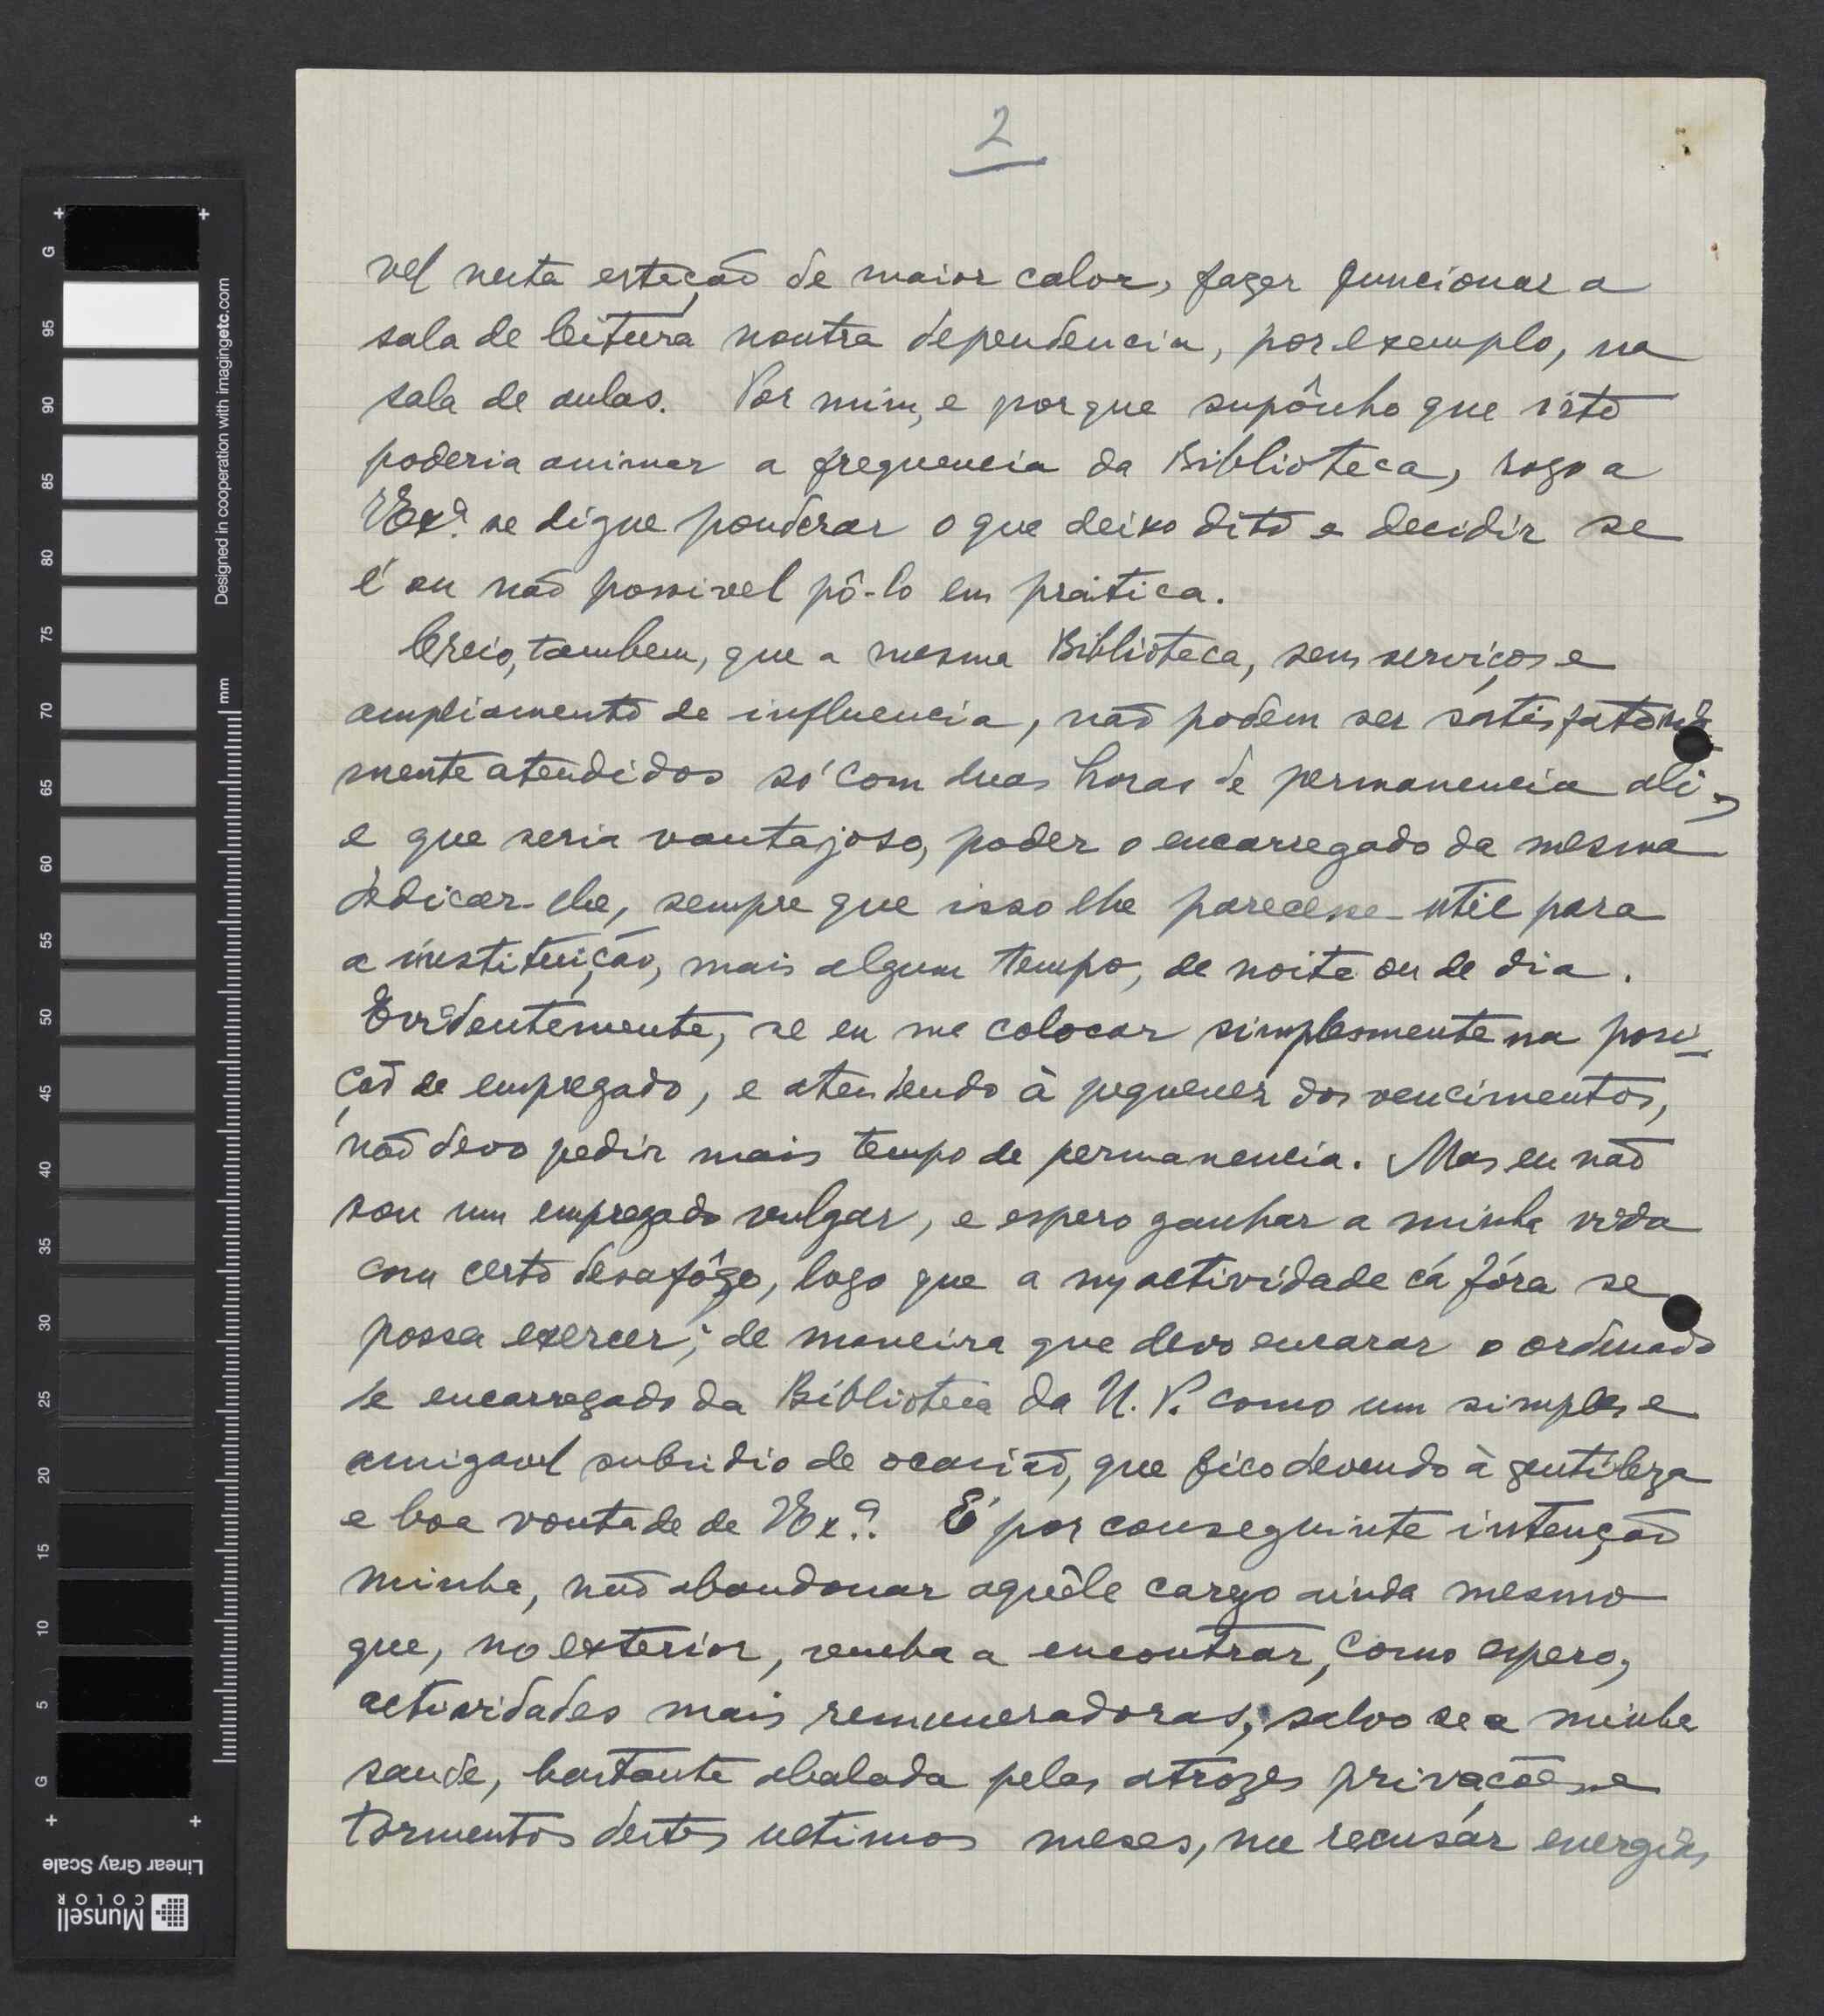 2
vel nesta estação de maior calor, fazer funcionar a
sala de leitura noutra dependencia, por exemplo, na
sala de aulas. Por mim, e porque supônho que isto
poderia animar a frequencia da Biblioteca, rogo a
VExª. se digne ponderar o que deixo dito e decidir se
é ou não possivel pô-lo em prática.
Creio, tambem, que a mesma Biblioteca, seus serviços e
ampliamento de influencia, não podem ser satisfatoria
mente atendidos só com duas horas de permanencia ali,
e que seria vantajoso, poder o encarregado da mesma
dedicar-lhe, sempre que isso lhe parecesse util para
a instituição, mais algum tempo, de noite ou de dia.
Evidentemente, se eu me colocar simplesmente na posi-
ção de empregado, e atendendo à pequenez dos vencimentos,
não devo pedir mais tempo de permanencia. Mas eu não
sou um empregado vulgar, e espero ganhar a minha vida
com certo desafôgo, logo que a mª actividade cá fóra se
possa exercer; de maneira que devo encarar o ordenado
de encarregado da Biblioteca da U. P. como um simples e
amigavel subsidio de ocasião, que fico devendo à gentileza
e boa vontade de VExª. É por conseguinte intenção
minha, não abandonar aquêle cargo ainda mesmo
que, no exterior, venha a encontrar, como espero,
actividades mais remuneradoras, salvo se a minha
saude, bastante abalada pelas atrozes privações e
tormentos destes ultimos meses, me recusár energias
Designed in cooperation with imagingetc.com
mm
G
95
90
85
80
75
70
65
60
55
50
45
40
35
30
25
20
15
10
5
G
Linear Gray Scale
Munsell
COLOR